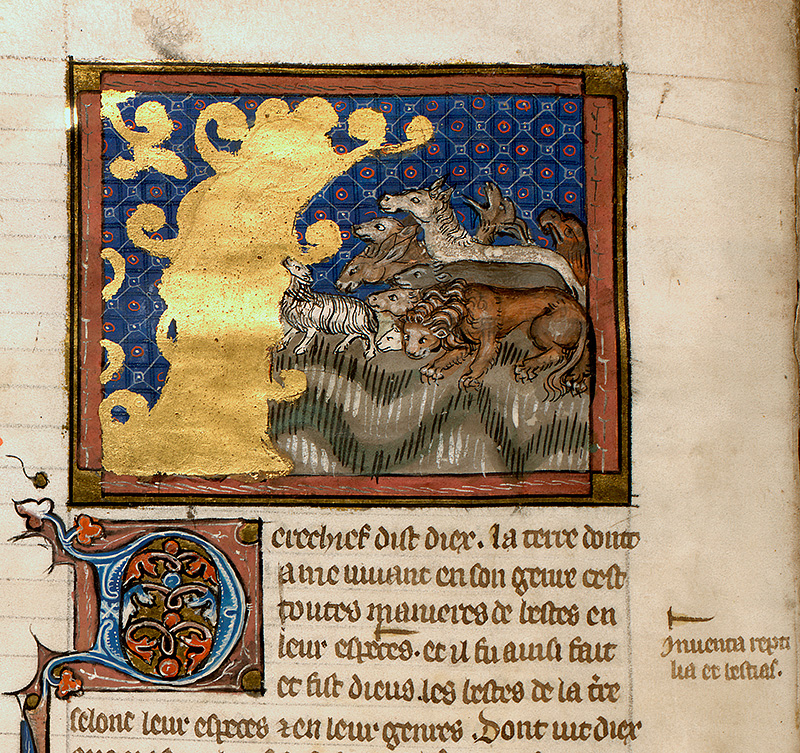 Derechief dist diex. la terre doint
ame uiuant en son genre cest
toutes manieres de bestes en
leur especes. et il fu ainsi fait
et fist dieus. les bestes de la t̄re
selonc leur especes ⁊ en leur genres. Dont uit diex
Iumenta repti
lia et bestias.